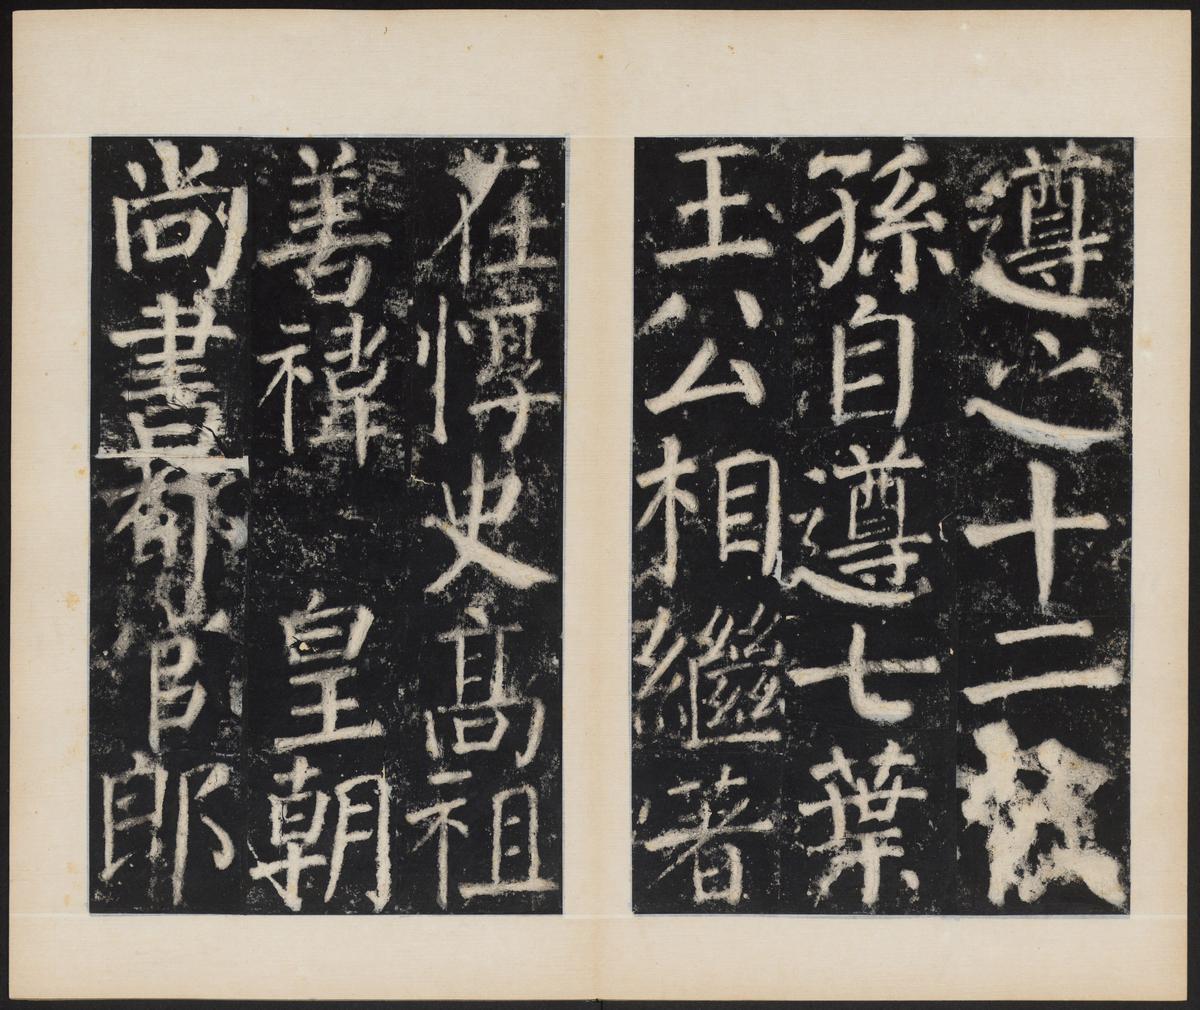 遵之十二
孫自遵七葉
王公相繼著
在惇史高祖
善禕皇朝
尚書都官郎